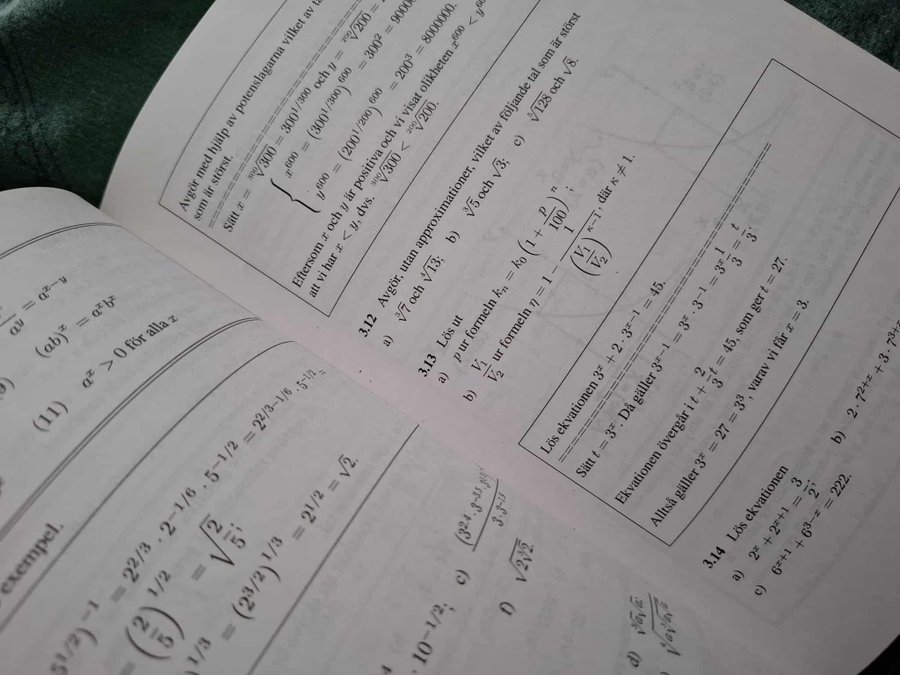 a^y = a^{x−y}
(ab)^x = a^x b^x
(11) a^x > 0 för alla x
exempel.
5^{1/2})^{−1} = 2^{2/3} · 2^{−1/6} · 5^{−1/2} = 2^{2/3−1/6} · 5^{−1/2} =
= (2/5)^{1/2} = √(2/5);
^{1/3} = (2^{3/2})^{1/3} = 2^{1/2} = √2.
· 10^{−1/2};
c)
f)
d)
Avgör med hjälp av potenslagarna vilket av
som är störst.
Sätt x = ³⁰⁰√300 = 300^{1/300} och y = ²⁰⁰√200 =
x^{600} = (300^{1/300})^{600} = 300² = 90000
y^{600} = (200^{1/200})^{600} = 200³ = 8000000.
Eftersom x och y är positiva och vi visat olikheten x^{600} < y^{600}
att vi har x < y, dvs. ³⁰⁰√300 < ²⁰⁰√200.
3.12 Avgör, utan approximationer, vilket av följande tal som är störst
a) ³√7 och ⁴√13; b) ³√5 och √3; c) ⁵√128 och √8.
3.13 Lös ut
a) p ur formeln k_n = k_0 (1 + p/100)^n;
b) V_1/V_2 ur formeln η = 1 − 1/(V_1/V_2)^{κ−1}, där κ ≠ 1.
Lös ekvationen 3^x + 2 · 3^{x−1} = 45.
Sätt t = 3^x. Då gäller 3^{x−1} = 3^x · 3^{−1} = 3^x 1/3 = t/3.
Ekvationen övergår i t + 2/3 t = 45, som ger t = 27.
Alltså gäller 3^x = 27 = 3³, varav vi får x = 3.
3.14 Lös ekvationen
a) 2^x + 2^{x+1} = 3/2; b) 2 · 7^{2+x} + 3 · 7
c) 6^{x+1} + 6^{3−x} = 222.